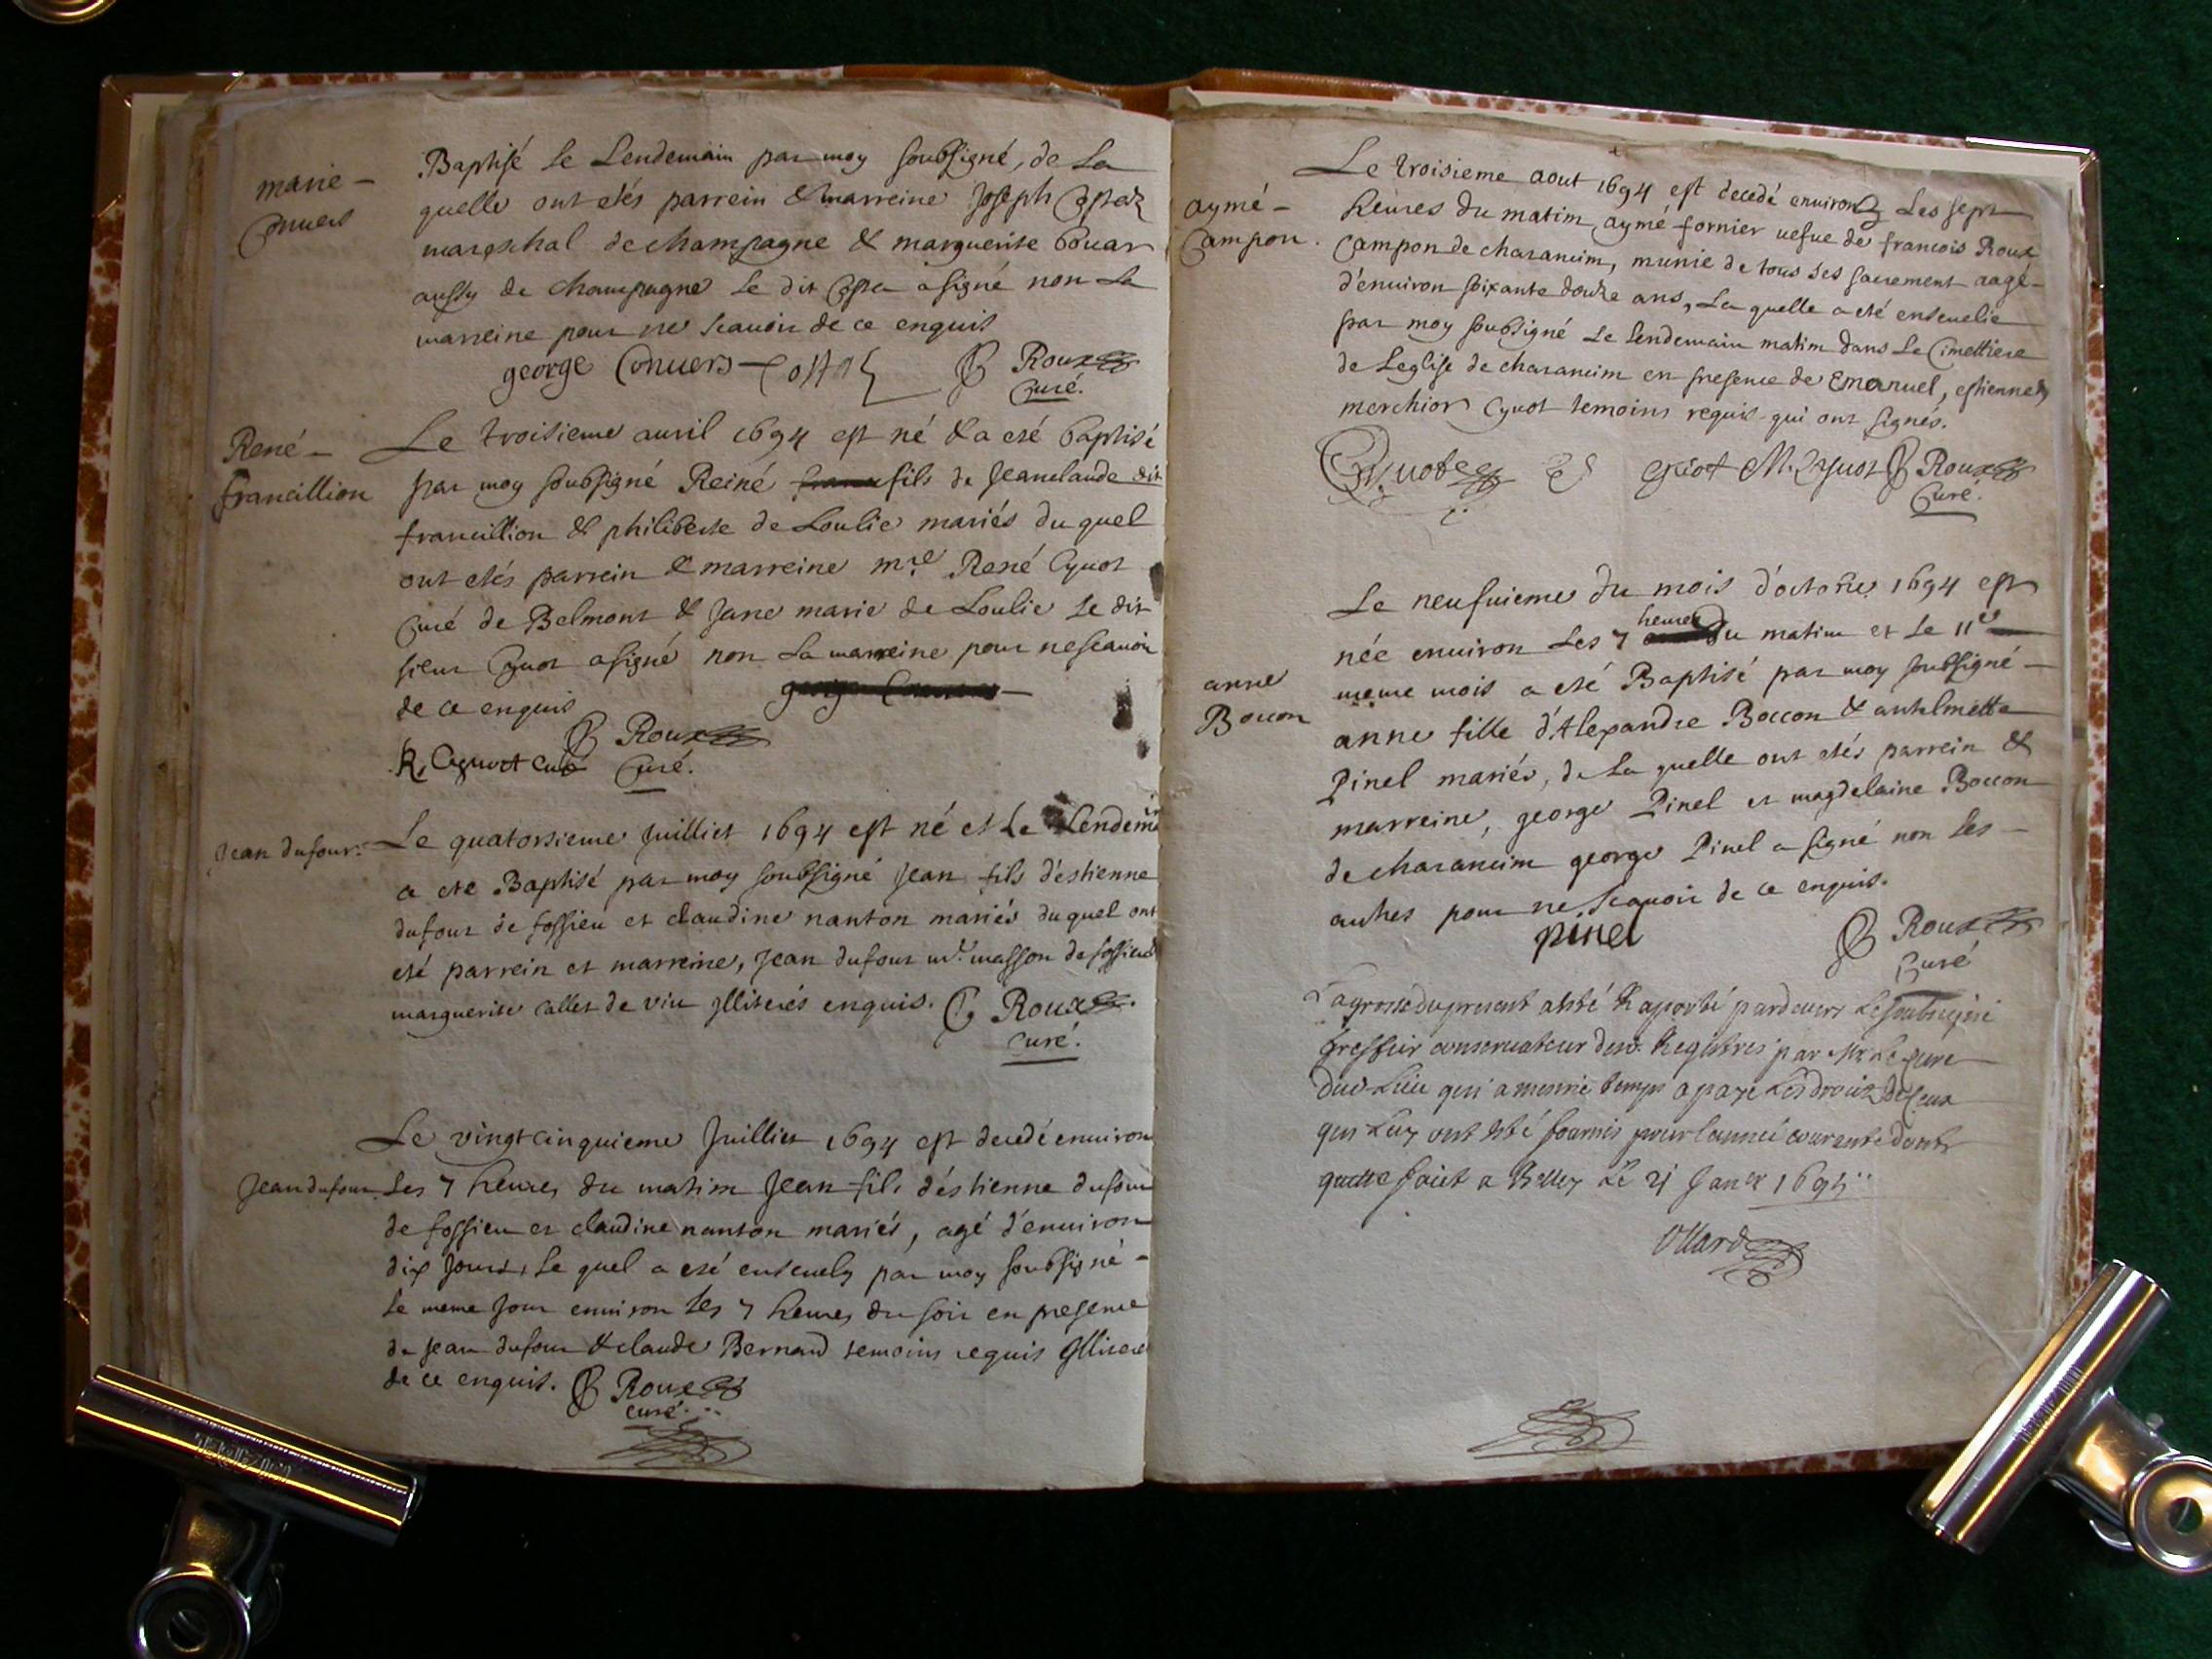 marie -
Conuers
Baptisé Le Lendemain par moy soubsigné, de La
quelle ont etés parrein & marreine Joseph Costaz
mareschal de champagne & marguerite Bouar
aussy de champagne le dit Costa a signé non La
marreine pour ne scauoir de ce enquis
george Conuers Costaz Roux
Curé.
René -
francillion
Le troisieme auril 1694 est né & a eté baptisé
par moy soubsigné Reiné fils de Jeanclaude dit
francillion & philiberte de Loulie mariés du quel
ont etés parrein & marreine mre René Cyuot
Curé de Belmont & Jane marie de Loulie le dit
sieur Cyuot a signé non La marreine pour ne scauoir
de ce enquis
Roux
R. Cyuot curé Curé.
Jean dufour.
Le quatorsieme Juilliet 1694 est né et Le Lendemin
a eté Baptisé par moy soubsigné Jean fils d'estienne
dufour de fossieu et claudine nanton mariés du quel ont
eté parrein et marreine, Jean dufour mr. masson de fossieu &
marguerite callet de viu Jlliterés enquis. Roux
Curé.
Jean dufour
Le vingt cinquieme Juilliet 1694 est decedé enuiron
Les 7 heures du matim Jean fils d'estienne dufour
de fossieu et claudine nanton mariés, agé d'enuiron
dix Jours, Le quel a eté enseuely par moy soubsigné -
Le meme Jour enuiron Les 7 heures du soir en presence
de Jean dufour & claude Bernard temoins requis Jlliteré
de ce enquis. Roux
curé.
aymé -
Campon.
Le troisieme aout 1694 est decedé environ Les sept
heures du matim, aymé fornier uefue de francois Roux
Campon de charancim, munie de tous ses sacrement aagé
d'enuiron soixante douze ans, La quelle a eté enseuelie
par moy soubsigné Le Lendemain matim dans Le Cimettiere
de Leglise de charancim en presence de Emanuel, estienne &
merchior Cyuot temoins requis qui ont signés.
Cyuot Cyuot M. Cyuot Roux
Curé.
anne
Bocon
Le neufuieme du mois d'octobre 1694 est
heures
née enuiron Les 7 du matim et Le 11e
meme mois a eté Baptisé par moy soubsigné -
anne fille d'Alexandre Boccon & anthelmette
Pinel mariés, de La quelle ont etés parrein &
marreine, george Pinel et magdelaine Boccon
de charancim george Pinel a signé non Les -
autres pour ne scauoir de ce enquis.
pinel
Roux
Curé
La grosse du present a esté Raporté pardeuers Le soubsigné
Greffier conseruateur desd. Registres par Mr Le Curé
dud Lieu qui a mesme temps a payé Les droits de Ceux
qui Luy ont esté fournis pour lannée courante dont
quitte fait a Belley Le 21 Janer 1695